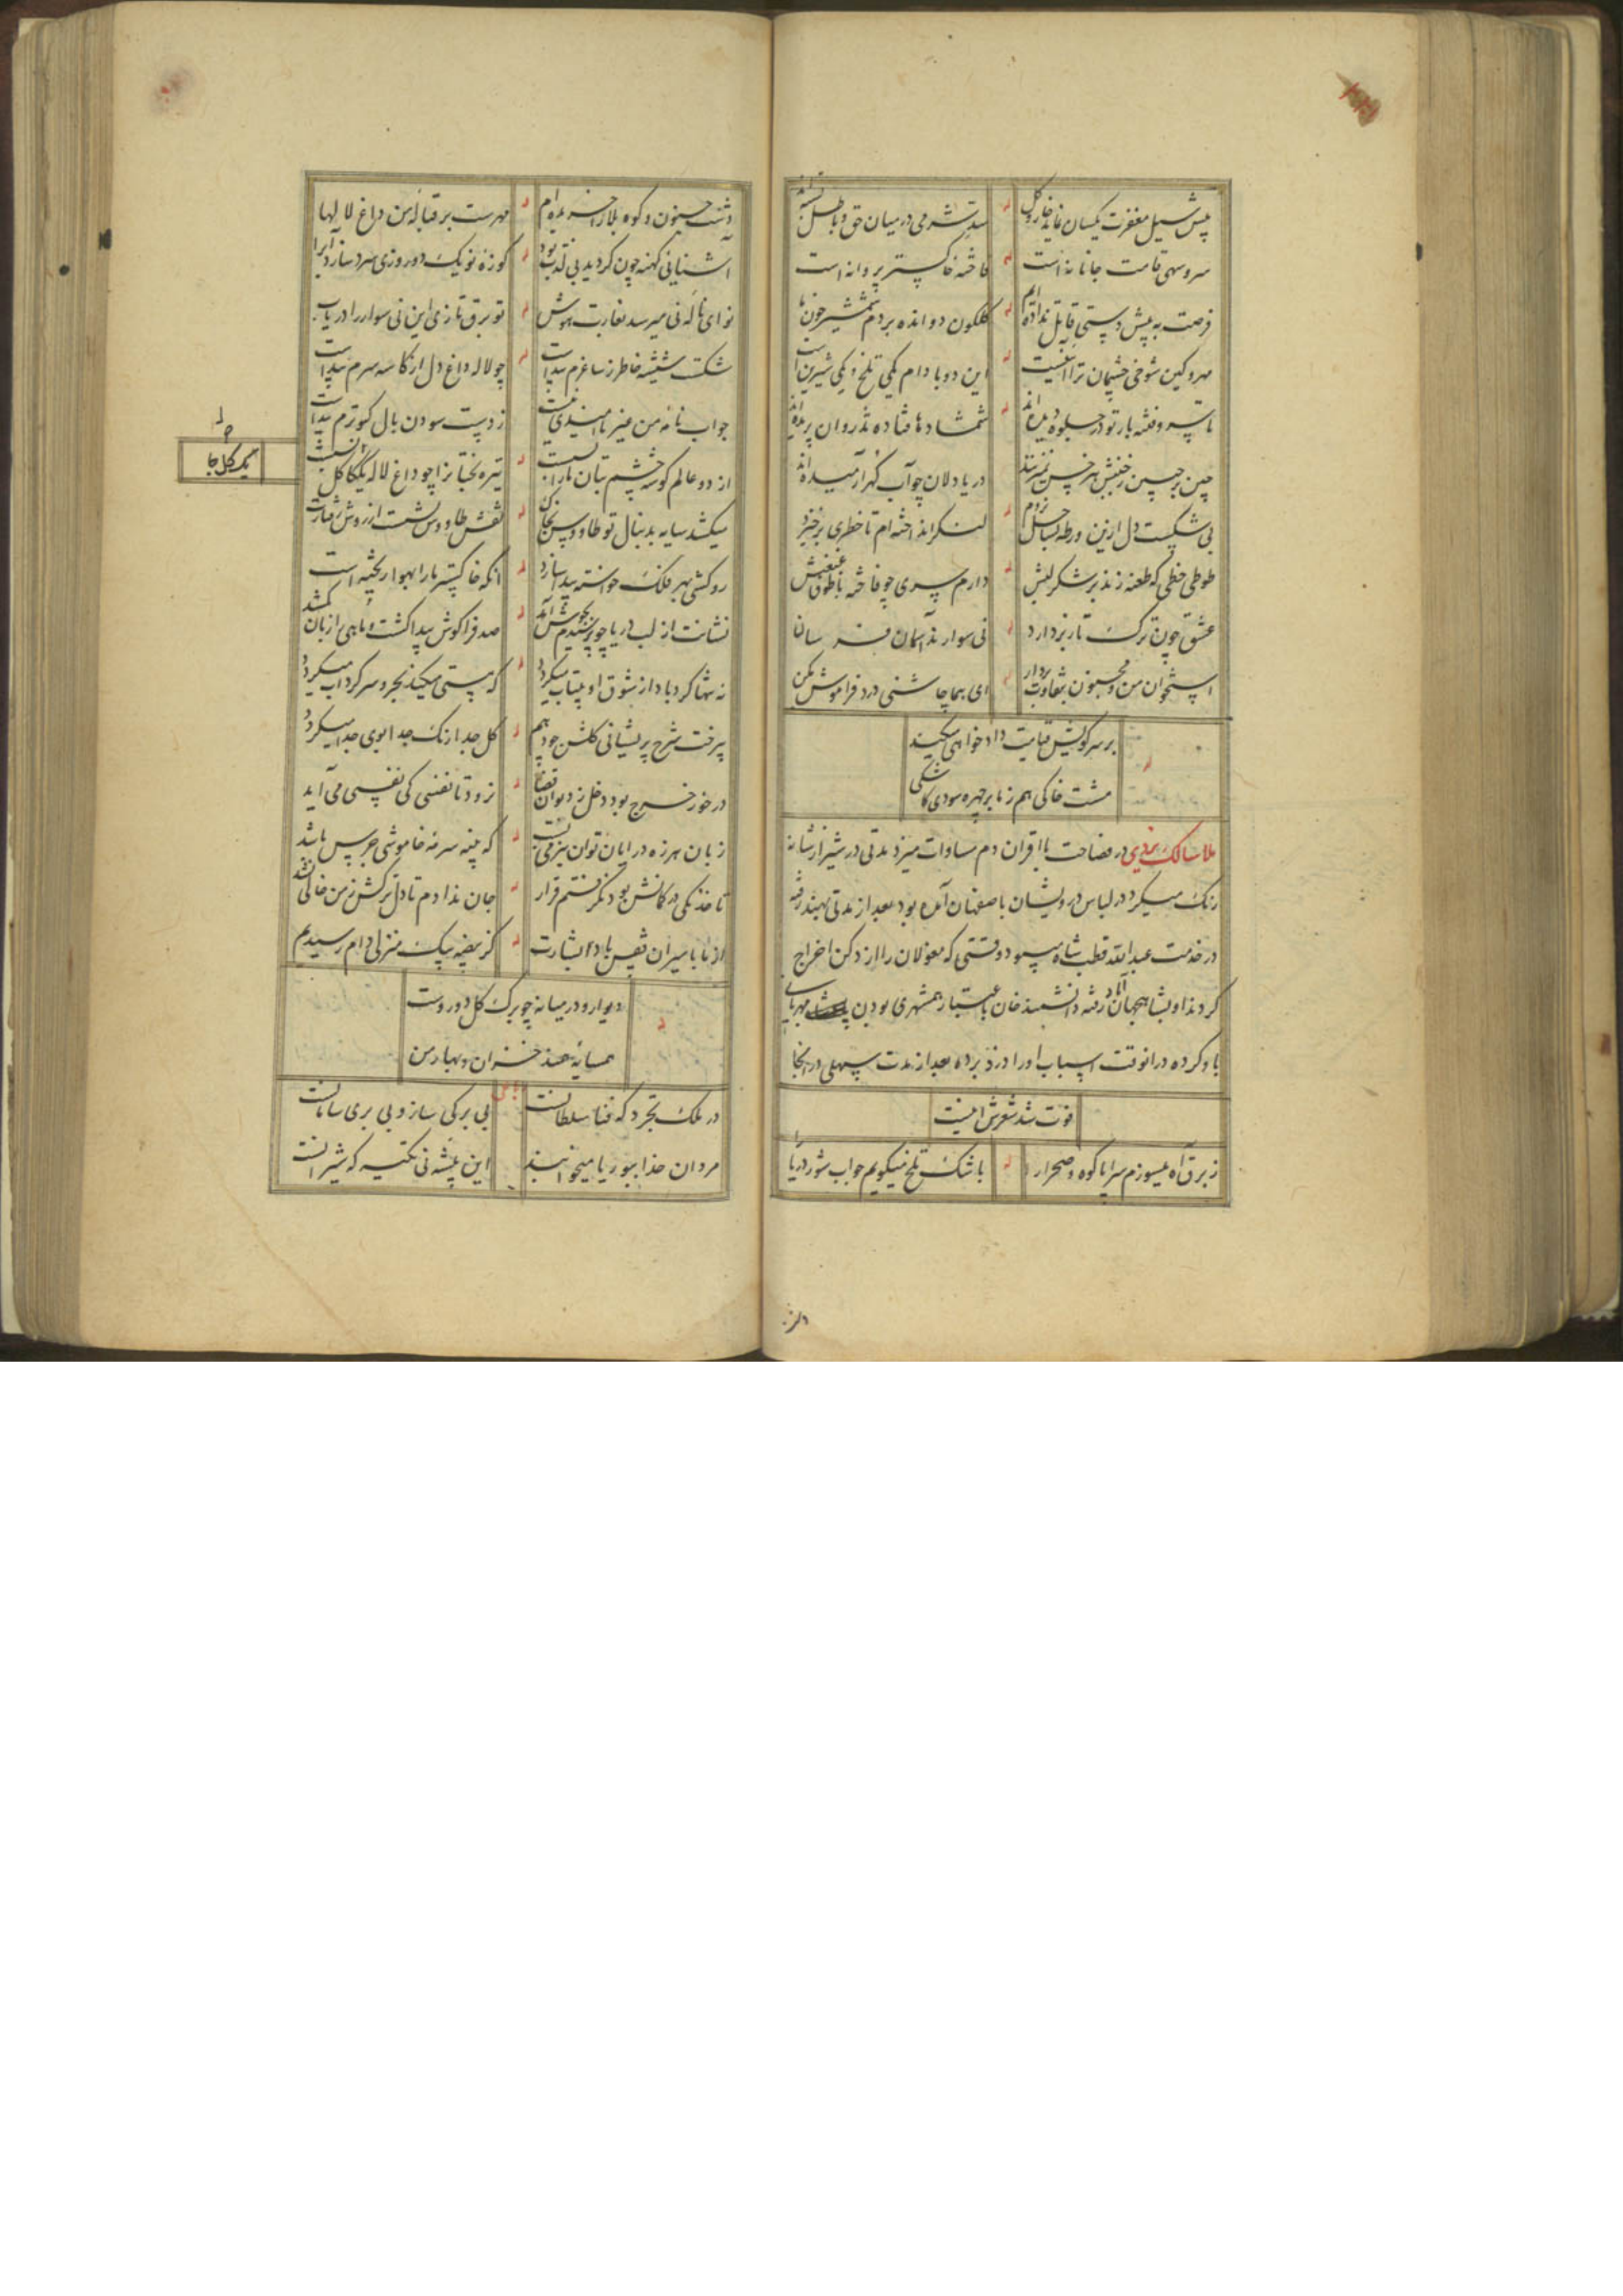 پیش سیل مغفرت یکسان نماید خار و گل
سد شرمی در میان حق و باطل بسته‌اند
سرو سهی قامت جانانه است
فاخته خاکستر پروانه است
فرصت به پیش دستی قاتل نداده‌ام
گلگون دوانده بر دم شمشیر خون ما
مهر و کین شوخی چشمان ترا آئینیست
این دو بادام یکی تلخ و یکی شیرین است
تا سرو فتنه بار تو در جلوه دیده‌اند
شمشادها فتاده تذروان پریده‌اند
چین بر جبین ز جنبش هر خس نمیزنند
دریادلان چو آب گهر آرمیده‌اند
بی شکست دل ازین ورطه بساحل نروم
لنگر انداخته‌ام تا خطری برخیزد
طوطی خطی که طعنه زند بر شکر لبش
دارم سری چو فاخته با طوق غبغبش
عشق چون ترک تاز بردارد
نی سوارند آسمان فرسان
استخوان من و مجنون بتفاوت بردار
ای هما چاشنی درد فراموش مکن
بر سر کویش قیامت دادخواهی میکند
مشت خاکی هم ز ما بر چهره سودی کاشکی
ملا سالک یزدی در فصاحت با اقران دم مساوات میزد مدتی در شیراز شانه
رنگ میکرد در لباس درویشان باصفهان آمده بود بعد از مدتی بهند رفته
در خدمت عبدالله قطب شاه میبود وقتی که مغولان را از دکن اخراج
کردند او بشاهجهان آباد رفته دانشمند خان باعتبار همشهری بودن مهربانی
باو کرده در آنوقت اسباب او را دزد برده بعد از مدت سهلی در آنجا
فوت شد شعرش اینست
ز برق آه میسوزم سراپا کوه و صحرا را
باشک تلخ میگویم جواب شور دریا
دشت جنون و کوه بلا را خریده‌ام
مهرست بر قباله من داغ لالها
آشنائی کهنه چون گردید بی لذت بود
کوزه نو یک دو روزی سرد سازد آب را
نوای ناله نی میرسد بغارت هوش
تو برق تازی این نی سوار را دریاب
شکست شیشه خاطر ز ساغرم پیداست
چو لاله داغ دل از کاسه سرم پیداست
جواب نامه من غیر ناامیدی نیست
ز دست سودن بال کبوترم پیداست
از دو عالم گوشه چشم بتان ما را بست
تیره بختانرا چو داغ لاله یکگل آتشست
یک گل جا
میکشد سایه بدنبال تو طاوس بخاک
نقش طاوس نشست از روش رفتارت
روکشی بهر فلک خواسته پیدا سازد
آنکه خاکستر ما را بهوا ریخته است
نشانت از لب دریا چو پرسیدم بجوش آمد
صد فراگوش پیدا گشت و ماهی از زبان گم شد
نه تنها گردباد از شوق او بیتاب میگردد
که مستی میکند بحر و سر گرداب میگردد
پرفت شرح پریشانی گلشن چو دهم
گل جدا رنگ جدا بوی جدا میگردد
در خور خرج بود دخل ز دیوان قضا
نرود تا نفسی کی نفسی می آید
زبان هرزه درایان توان بنرمی بست
که پنبه سرمه خاموشی جرس باشد
تا خدنگی در کمانش بود نگرفتم قرار
جان ندادم تا دل ترکش ز من خالی نشد
از ما باسیران قفس باد بشارت
کز بیضه بیک منزلی دام رسیدیم
دیوار و در میانه چو برگ گل دوروست
همسایه‌اند خزان و بهار من
در ملک تجرد که فنا سلطانست
بی برگی ساز و بی بری سامانست
مردان خدا ببوریا میخوابند
این بیشه نی تکیه گه شیرانست